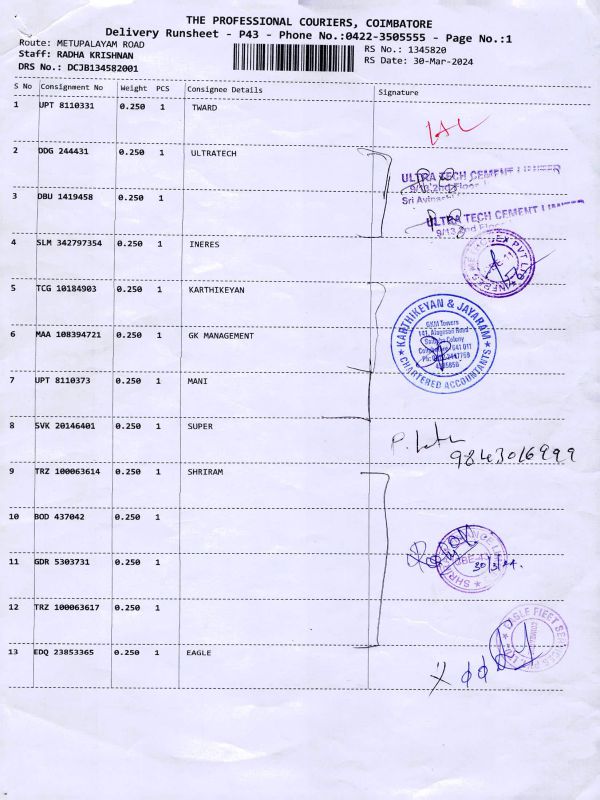 THE PROFESSIONAL COURIERS, COIMBATORE
Delivery Runsheet - P43 - Phone No.:0422-3505555 - Page No.:1
Route: METUPALAYAM ROAD RS No.: 1345820
Staff: RADHA KRISHNAN RS Date: 30-Mar-2024
DRS No.: DCJB134582001
S No Consignment No Weight PCS Consignee Details Signature
1 UPT 8110331 0.250 1 TWARD
2 DDG 244431 0.250 1 ULTRATECH
ULTRA TECH CEMENT LIMITED
3 DBU 1419458 0.250 1
Sri Avinashi
ULTRA TECH CEMENT LIMITED
9/13 2nd Floor
4 SLM 342797354 0.250 1 INERES
5 TCG 10184903 0.250 1 KARTHIKEYAN
KARTHIKEYAN & JAYARAM
CHARTERED ACCOUNTANTS
GKM Towers
6 MAA 108394721 0.250 1 GK MANAGEMENT
7 UPT 8110373 0.250 1 MANI
8 SVK 20146401 0.250 1 SUPER
9843016999
9 TRZ 100063614 0.250 1 SHRIRAM
10 BOD 437042 0.250 1
11 GDR 5303731 0.250 1
30/3/24.
12 TRZ 100063617 0.250 1
13 EDQ 23853365 0.250 1 EAGLE